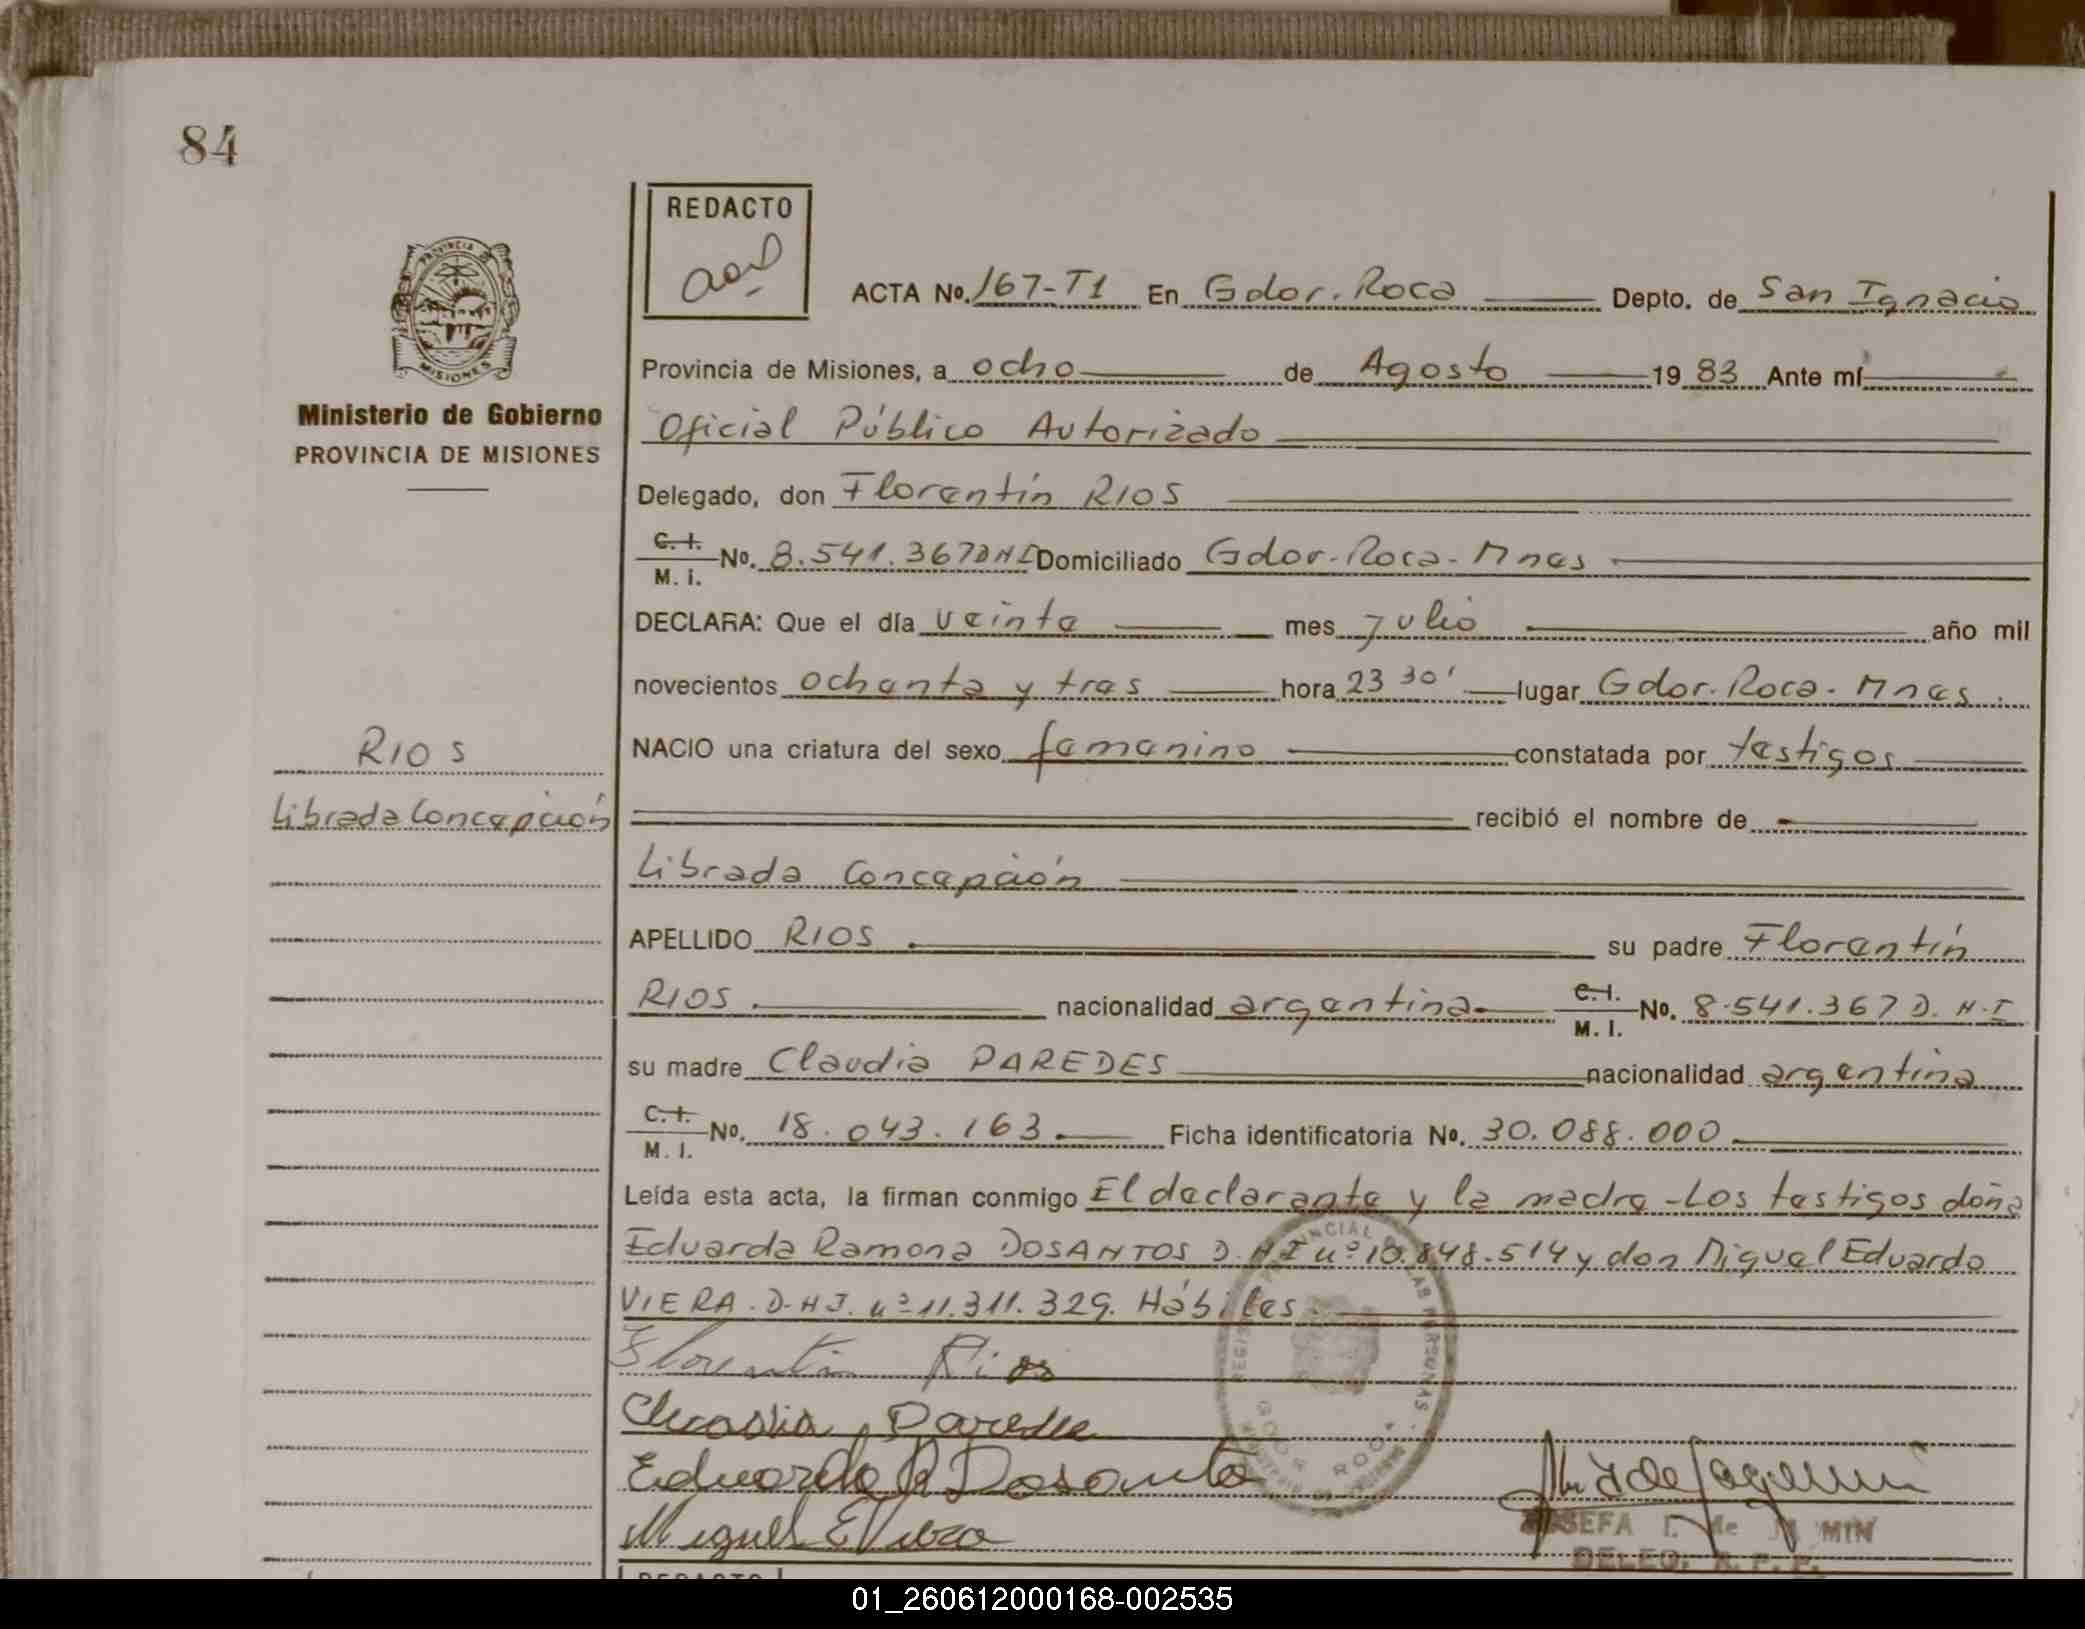 84
REDACTO
ACTA Nº. 167-T1 En Gdor. Roca Depto. de San Ignacio
PROVINCIA
MISIONES
Provincia de Misiones, a ocho de Agosto 19 83 Ante mí
Ministerio de Gobierno
PROVINCIA DE MISIONES
Oficial Público Autorizado
Delegado, don Florentín RIOS
C. I.
M. I. Nº. 8.541.367 DNI Domiciliado Gdor. Roca - Mnes
DECLARA: Que el día veinte mes Julio año mil
novecientos ochenta y tres hora 23 30' lugar Gdor. Roca - Mnes.
RIOS
NACIO una criatura del sexo femenino constatada por testigos
Librada Concepción
recibió el nombre de
Librada Concepción
APELLIDO RIOS su padre Florentín
RIOS. nacionalidad argentina C. I.
M. I. Nº. 8.541.367 D.N.I
su madre Claudia PAREDES nacionalidad argentina
C. I.
M. I. Nº. 18.043.163. Ficha identificatoria Nº. 30.088.000
Leída esta acta, la firman conmigo El declarante y la madre - Los testigos doña
Eduarda Ramona DOSANTOS D.N.I nº 10.848.514 y don Miguel Eduardo
VIERA. D.N.I. nº 11.311.329. Hábiles.
Florentin Rios
Claudia Paredes
Eduarda R Dosantos
Miguel E Viera
DELEG. R. P. P.
REDACTO
01_260612000168-002535